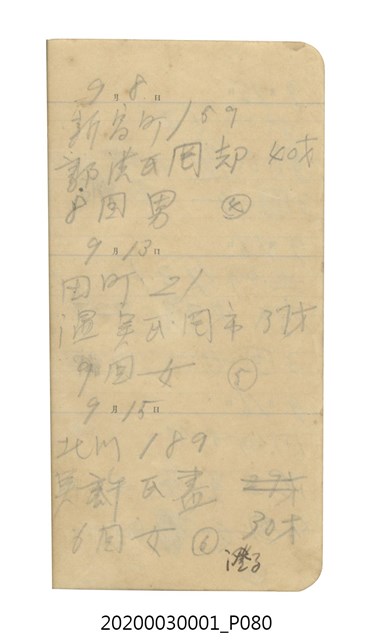 9月8日
新富町159
郭洪氏罔却 40才
8回男 ④
9月13日
田町 21
溫吳氏罔市 37才
9回女 ⑤
9月15日
北川 189
吳許氏盡 27才
30才
6回女 ⑥
澄子
20200030001_P080